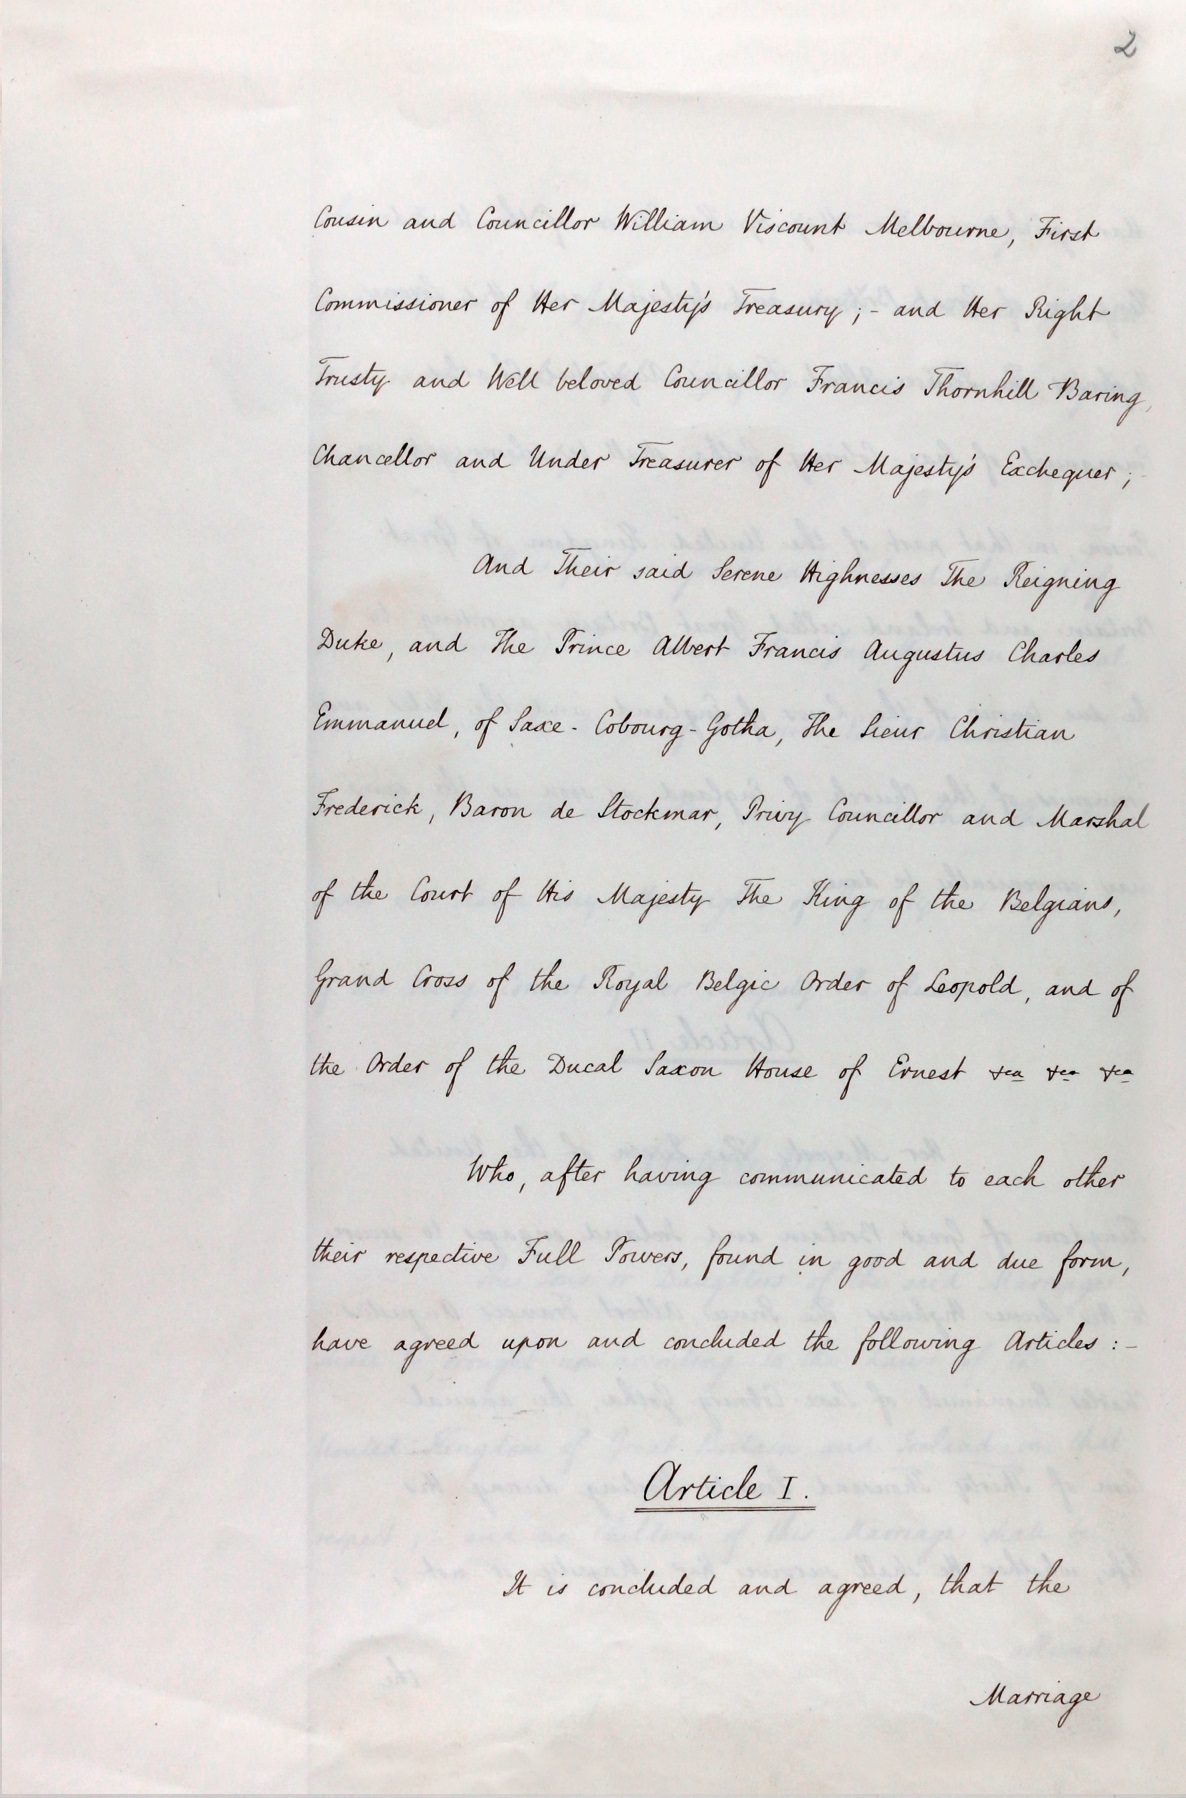 2
Cousin and Councillor William Viscount Melbourne, First
Commissioner of Her Majesty's Treasury ; - and Her Right
Trusty and Well beloved Councillor Francis Thornhill Baring,
Chancellor and Under Treasurer of Her Majesty's Exchequer ; -
And Their said Serene Highnesses The Reigning
Duke, and The Prince Albert Francis Augustus Charles
Emmanuel, of Saxe - Cobourg - Gotha, The Sieur Christian
Frederick, Baron de Stockmar, Privy Councillor and Marshal
of the Court of His Majesty The King of the Belgians,
Grand Cross of the Royal Belgic Order of Leopold, and of
the Order of the Ducal Saxon House of Ernest &ca &ca &ca
Who, after having communicated to each other
their respective Full Powers, found in good and due form,
have agreed upon and concluded the following Articles : -
Article I.
It is concluded and agreed, that the
Marriage